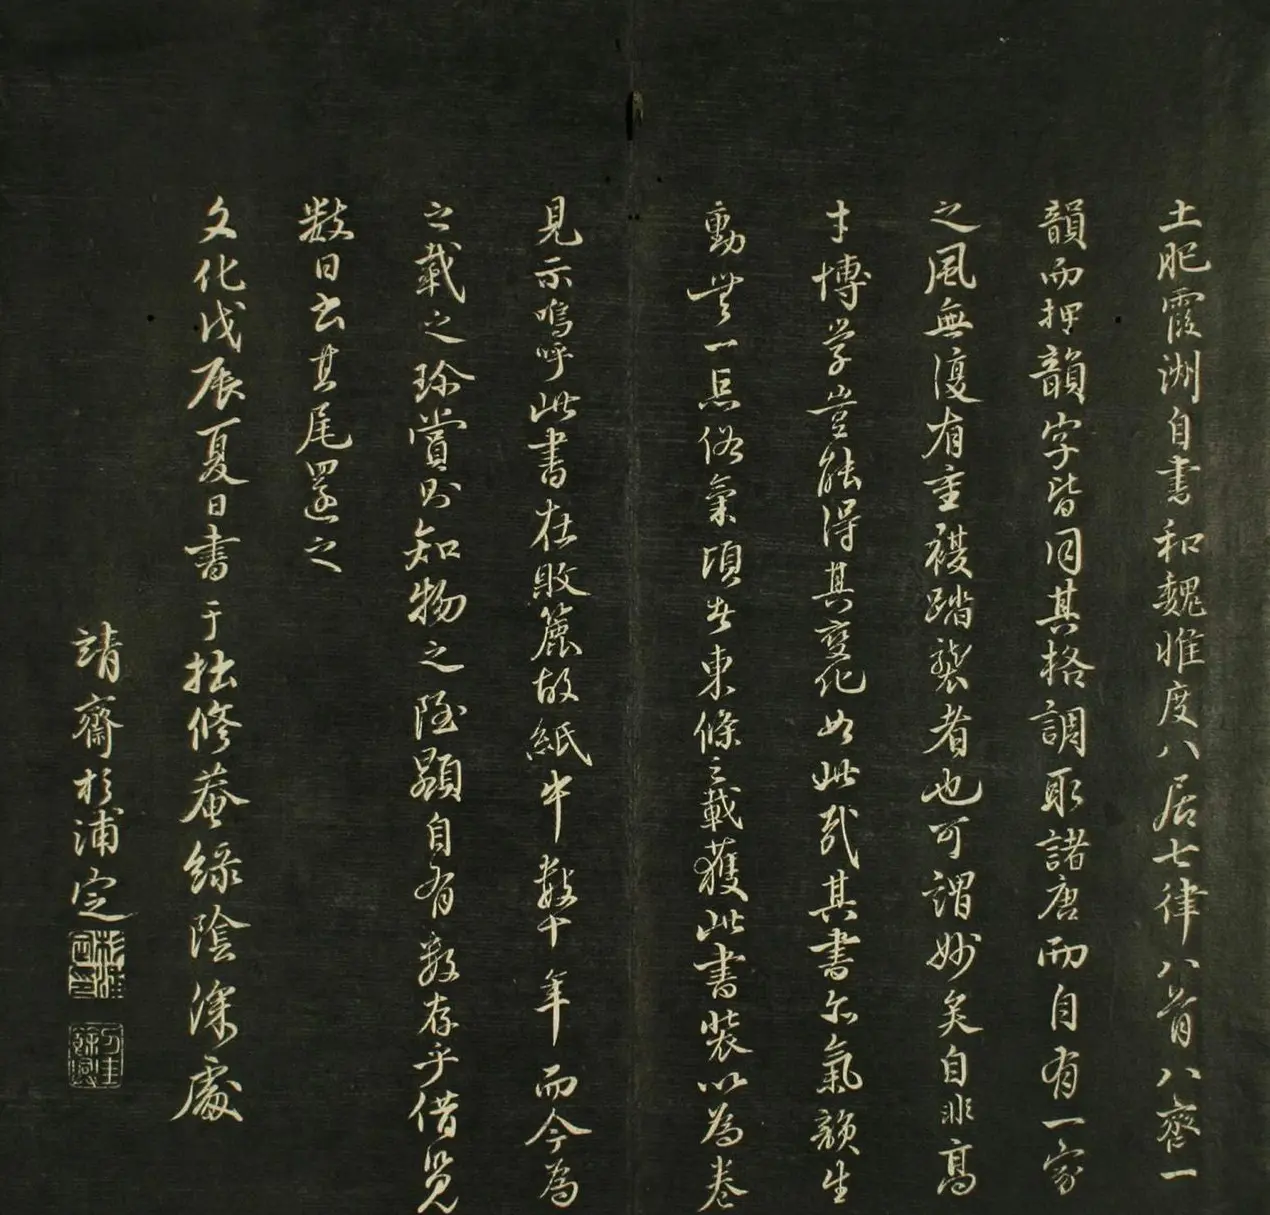 土肥霞洲自書和魏惟度八居七律八首八齊一
韻而押韻字皆同其格調取諸唐而自有一家
之風無復有重複蹈襲者也可謂妙矣自非高
才博學豈能得其變化如此哉其書亦氣韻生
動無一点俗氣頃者東條之載獲此書裝以為卷
見示嗚呼此書在敗簏故紙中數十年而今為
之載之珍賞則知物之隱顯自有數存乎借覽
數日書其尾還之
文化戊辰夏日書于拙修菴綠陰深處
靖齋杉浦定